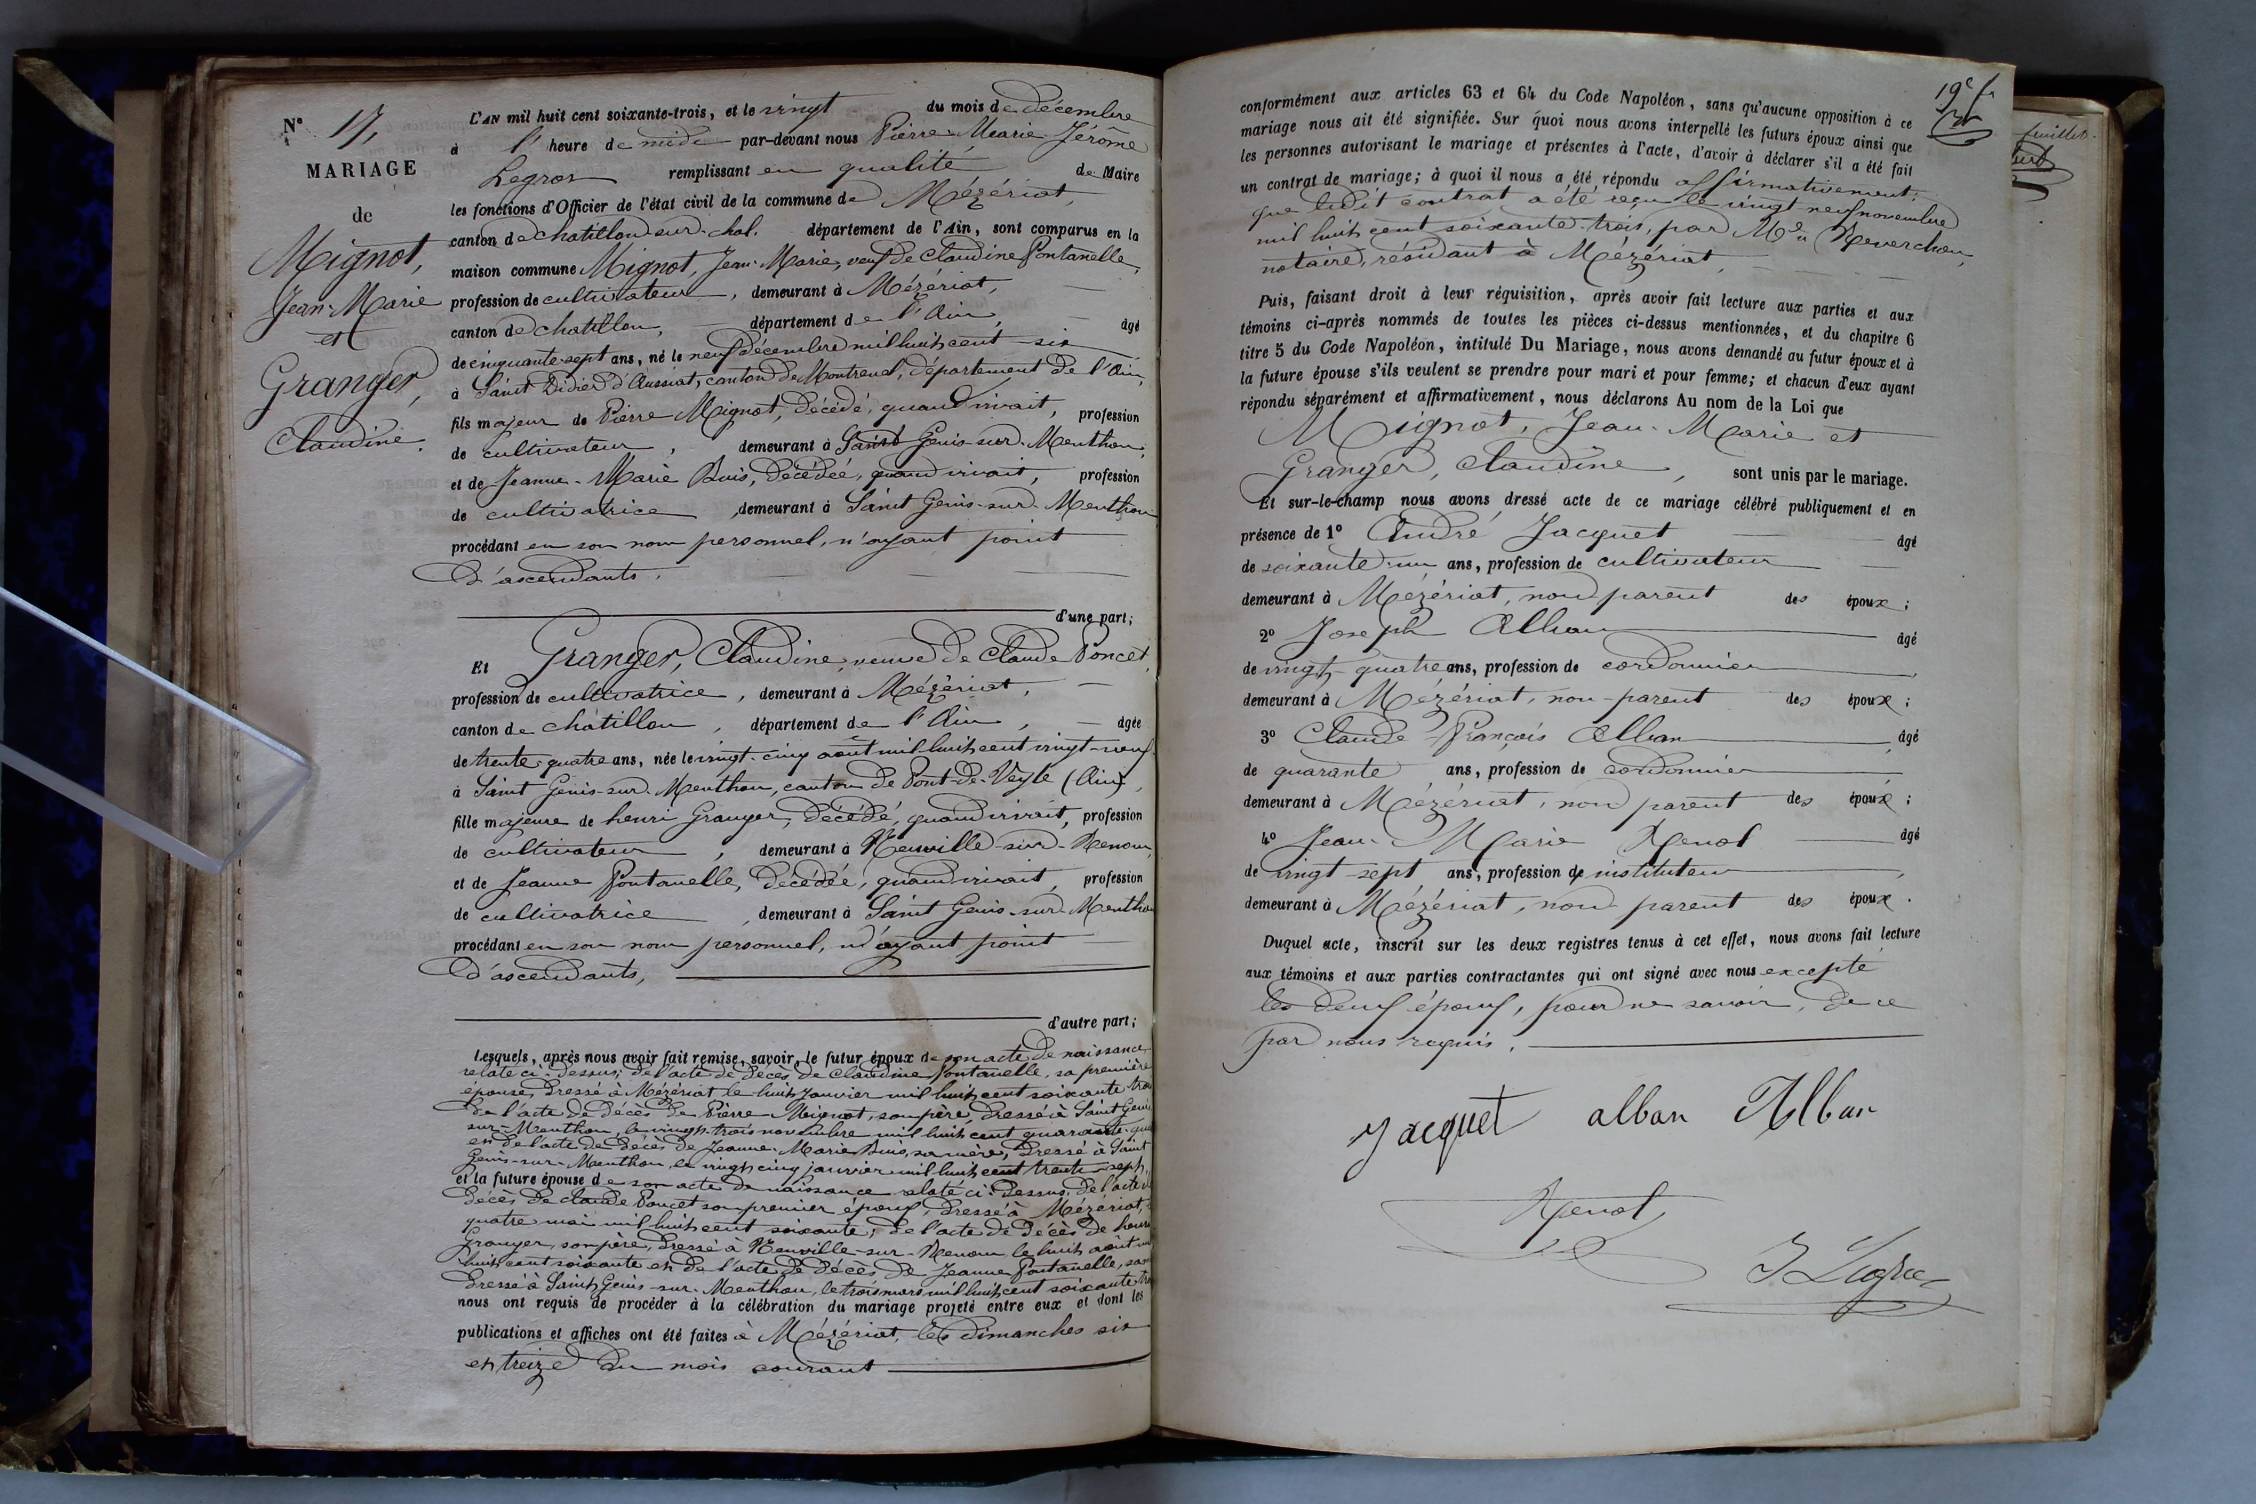 N° 17,
MARIAGE
de
Mignot,
Jean-Marie
et
Granger,
Claudine.
L'AN mil huit cent soixante-trois, et le vingt du mois de décembre
à l'heure de midi par-devant nous Pierre Marie Jérôme
Legros remplissant en qualité de Maire
les fonctions d'Officier de l'état civil de la commune de Mézériat,
canton de chatillon-sur-chal. département de l'Ain, sont comparus en la
maison commune Mignot, Jean-Marie, veuf de Claudine Fontanelle,
profession de cultivateur, demeurant à Mézériat,
canton de chatillon, département de l'Ain, âgé
de cinquante-sept ans, né le neuf décembre mil huit cent six
à Saint Didier d'Aussiat, canton de Montrevel, département de l'Ain,
fils majeur de Pierre Mignot, décédé, quand vivait, profession
de cultivateur, demeurant à Saint Genis-sur-Menthon,
et de Jeanne-Marie Buis, décédée, quand vivait, profession
de cultivatrice, demeurant à Saint Genis-sur-Menthon
procédant en son nom personnel, n'ayant point
d'ascendants.
d'une part;
Et Granger, Claudine, veuve de Claude Poncet,
profession de cultivatrice, demeurant à Mézériat,
canton de châtillon, département de l'Ain, âgée
de trente-quatre ans, née le vingt-cinq août mil huit cent vingt-neuf
à Saint Genis-sur-Menthon, canton de Pont-de-Veyle (Ain),
fille majeure de henri Granger, décédé, quand vivait, profession
de cultivateur, demeurant à Neuville-sur-Renom,
et de Jeanne Fontanelle, décédée, quand vivait, profession
de cultivatrice, demeurant à Saint Genis-sur-Menthon
procédant en son nom personnel, n'ayant point
d'ascendants,
d'autre part;
Lesquels, après nous avoir fait remise, savoir, le futur époux de son acte de naissance
relaté ci-dessus; de l'acte de décès de Claudine Fontanelle, sa première
épouse, dressé à Mézériat le huit janvier mil huit cent soixante trois
de l'acte de décès de Pierre Mignot, son père, dressé à Saint Genis
sur-Menthon, le vingt-trois novembre mil huit cent quarante
et de l'acte de décès de Jeanne-Marie Buis, sa mère, dressé à Saint
Genis-sur-Menthon, le vingt cinq janvier mil huit cent trente-sept,
et la future épouse de son acte de naissance relaté ci-dessus, de l'acte de
décès de claude Poncet son premier époux, dressé à Mézériat,
quatre mai mil huit cent soixante, de l'acte de décès de henri
Granger, son père, dressé à Neuville-sur-Renom le huit août mil
huit cent soixante et de l'acte de décès de Jeanne Fontanelle, sa
dressé à Saint Genis-sur-Menthon, le trois mars mil huit cent soixante trois
nous ont requis de procéder à la célébration du mariage projeté entre eux et dont les
publications et affiches ont été faites à Mézériat, les dimanches six
et treize du mois courant
19e f.
feuillet.
conformément aux articles 63 et 64 du Code Napoléon, sans qu'aucune opposition à ce
mariage nous ait été signifiée. Sur quoi nous avons interpellé les futurs époux ainsi que
les personnes autorisant le mariage et présentes à l'acte, d'avoir à déclarer s'il a été fait
un contrat de mariage; à quoi il nous a été répondu affirmativement;
que ledit contrat a été reçu le vingt neuf novembre
mil huit cent soixante-trois, par Me Reverchon,
notaire, résidant à Mézériat,
Puis, faisant droit à leur réquisition, après avoir fait lecture aux parties et aux
témoins ci-après nommés de toutes les pièces ci-dessus mentionnées, et du chapitre 6
titre 5 du Code Napoléon, intitulé Du Mariage, nous avons demandé au futur époux et à
la future épouse s'ils veulent se prendre pour mari et pour femme; et chacun d'eux ayant
répondu séparément et affirmativement, nous déclarons Au nom de la Loi que
Mignot, Jean-Marie et
Granger, Claudine, sont unis par le mariage.
Et sur-le-champ nous avons dressé acte de ce mariage célébré publiquement et en
présence de 1° André Jacquet âgé
de soixante-un ans, profession de cultivateur
demeurant à Mézériat, non parent des époux;
2° Joseph Alban âgé
de vingt-quatre ans, profession de cordonnier
demeurant à Mézériat, non-parent des époux;
3° Claude François Alban âgé
de quarante ans, profession de cordonnier
demeurant à Mézériat, non parent des époux;
4° Jean-Marie Renol âgé
de vingt-sept ans, profession de instituteur
demeurant à Mézériat, non parent des époux.
Duquel acte, inscrit sur les deux registres tenus à cet effet, nous avons fait lecture
aux témoins et aux parties contractantes qui ont signé avec nous excepté
les deux époux, pour ne savoir, de ce
par nous requis.
Jacquet alban Alban
Renol
J Legros